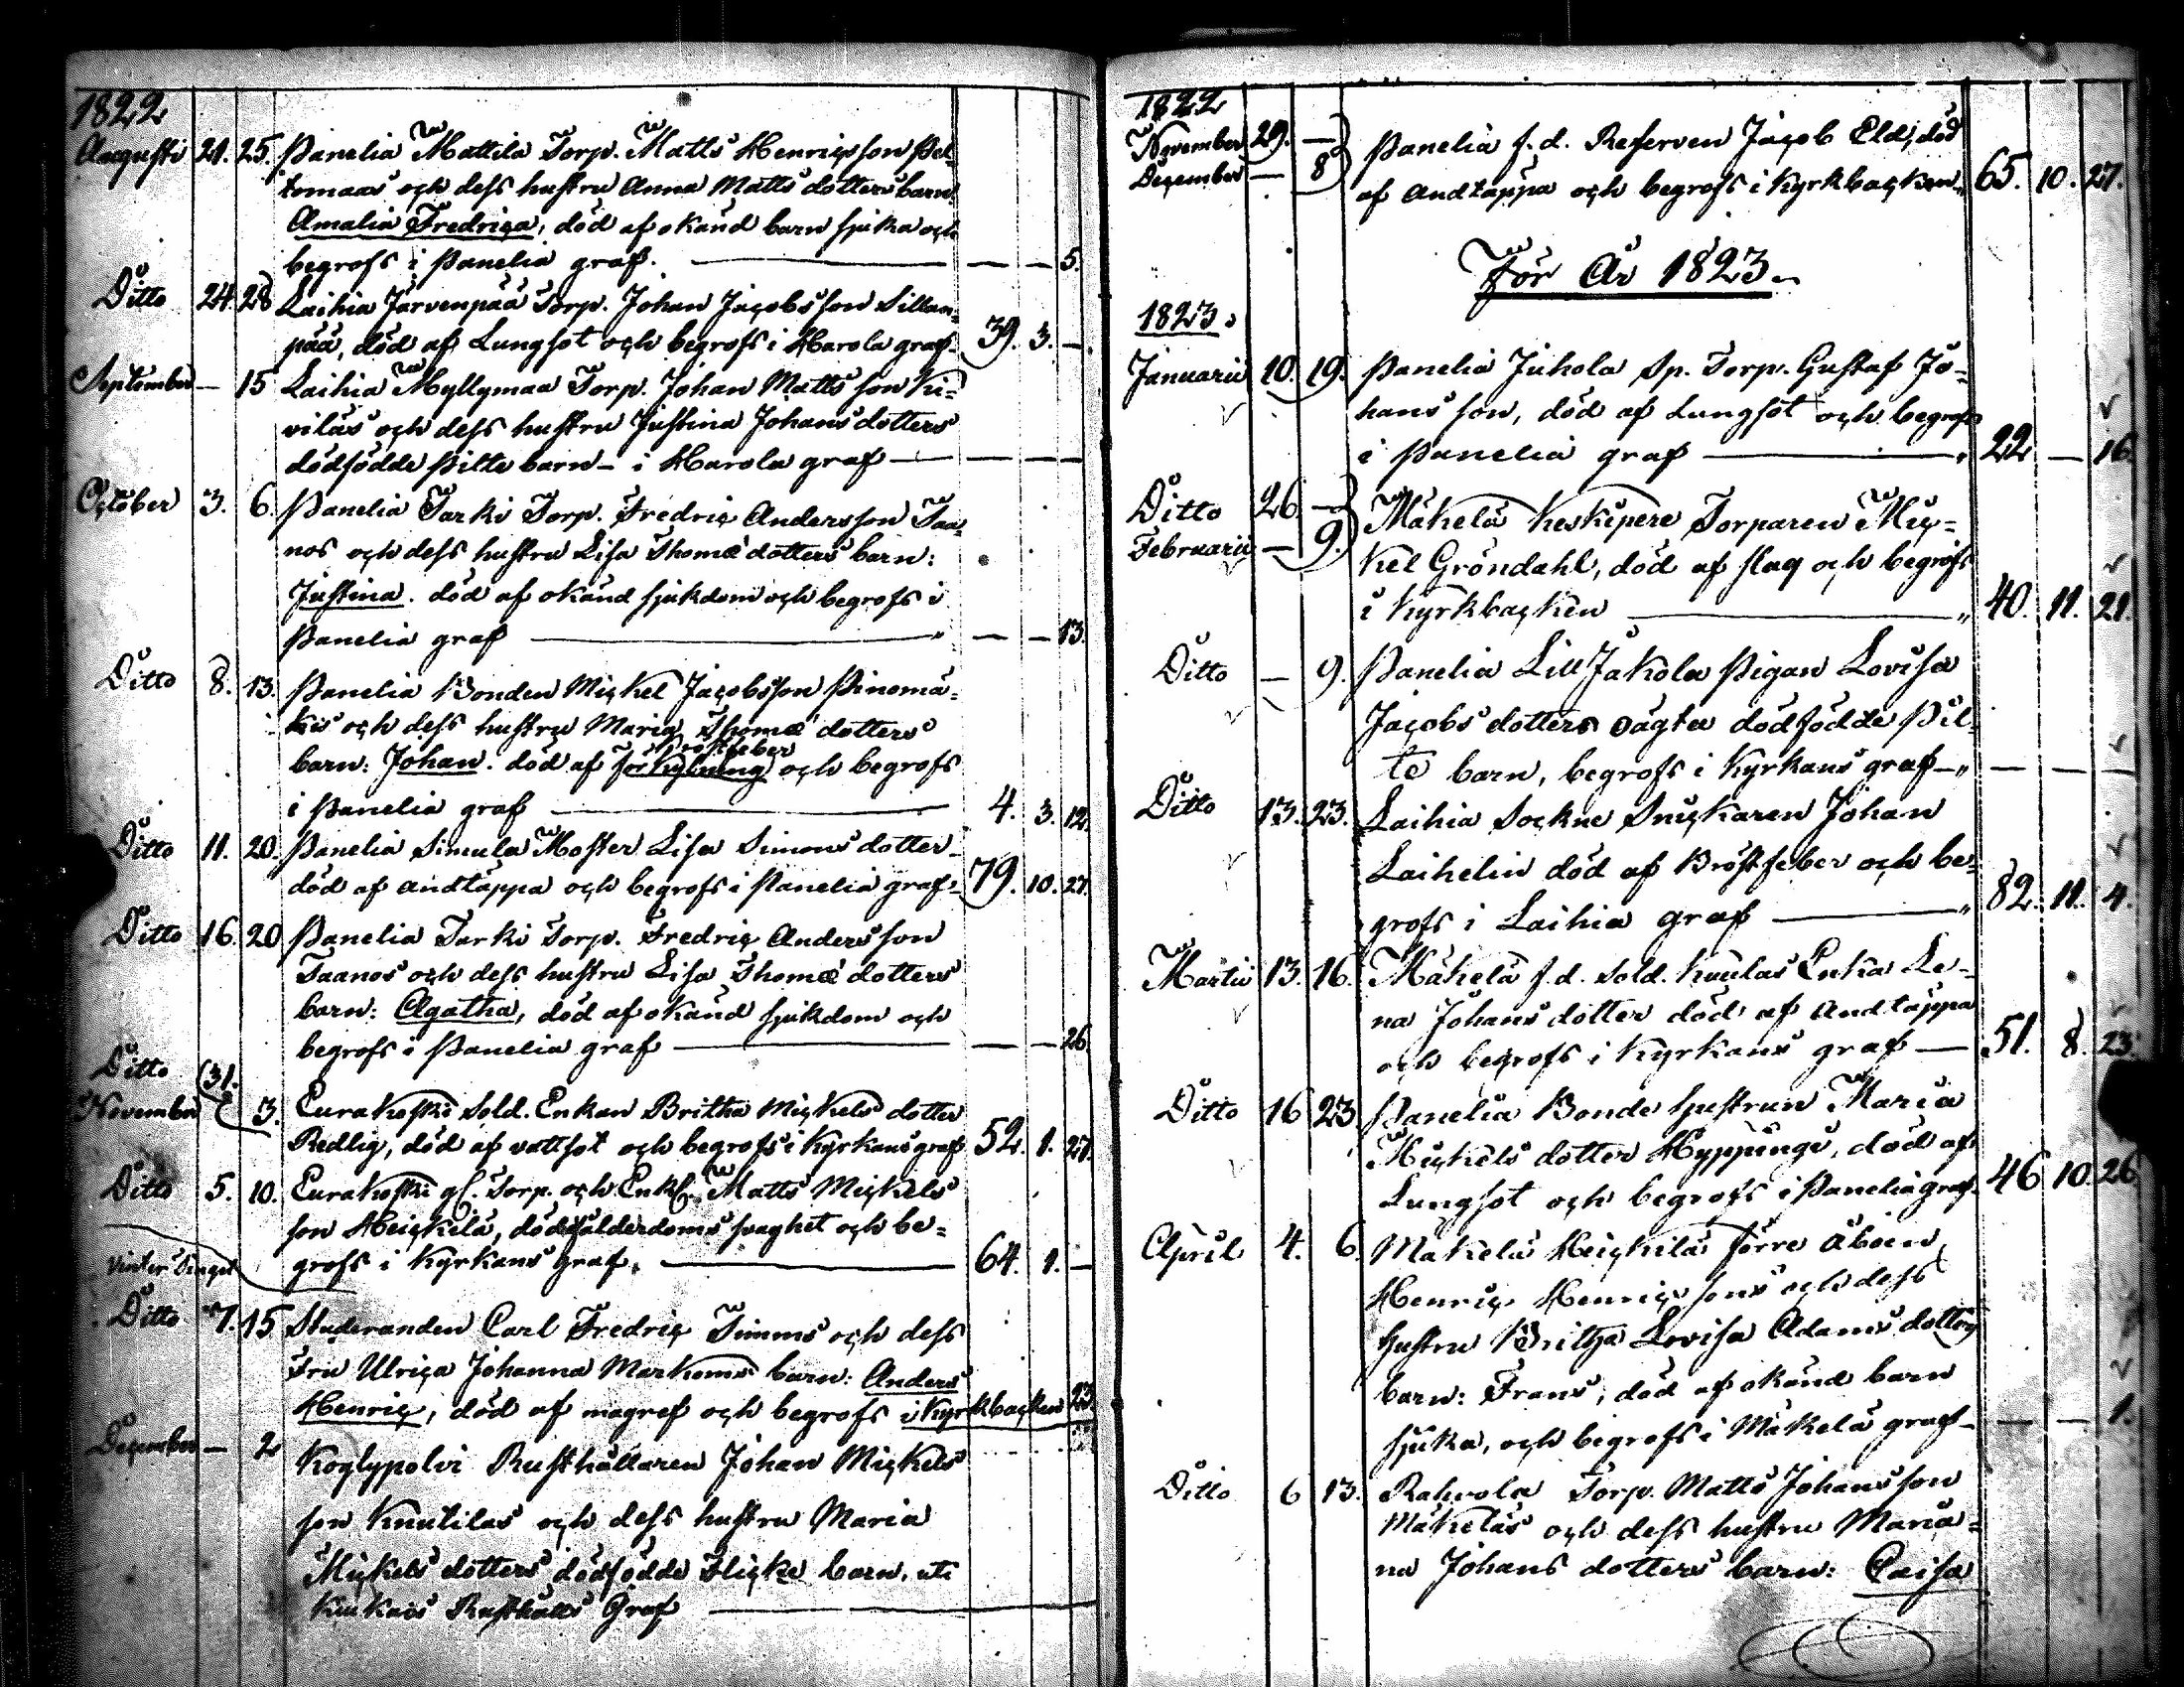 1822
Augusti 21. 25. Panelia Mattila Torp. Matts Henricsson Pel-
tomaas och dess hustru Anna Mattsdotters barn
Amalia Fredrica, död af okänd barn sjuka och
begrofs i Panelia graf. — — — 5.
Ditto 24. 28 Laihia Järvenpää Torp. Johan Jacobsson Sillan-
pää, död af Lungsot och begrofs i Harola graf. 39. 3. —
September — 15 Laihia Myllymaa Torp. Johan Mattsson Ki-
viläs och dess hustru Justina Johansdotters
dödfödde Pilte barn — i Harola graf — — — —
October 3. 6. Panelia Tarki Torp. Fredric Andersson Taa-
nos och dess hustru Lisa Thomædotters barn:
Justina. död af okänd sjukdom och begrofs i
Panelia graf — — — 13.
Ditto 8. 13. Panelia Bonden Mickel Jacobsson Pinomä-
kis och dess hustru Maria Thomædotters
Bröstfeber
barn: Johan. död af förkylning och begrofs
i Panelia graf — 4. 3. 12.
Ditto 11. 20. Panelia Simula Moster Lisa Simonsdotter
död af andtäppa och begrofs i Panelia graf. 79. 10. 27.
Ditto 16. 20 Panelia Tarki Torp. Fredric Andersson
Taanos och dess hustru Lisa Thomædotters
barn: Agatha, död af okänd sjukdom och
begrofs i Panelia graf — — — 26
Ditto 31.
November 3. Eurakoski Sold. Enkan Britha Mickelsdotter
Redlig, död af vattsot och begrofs i Kyrkans graf 52. 1. 27.
Ditto 5. 10. Eurakoski gl. Torp. och Enkl. Matts Mickels
son Heickelä, död af ålderdoms svaghet och be-
grofs i Kyrkans graf. — 64. 1. —
Vinter Tinget
Ditto 7. 15 Studeranden Carl Fredric Timms och dess
Fru Ulrica Johanna Markoms barn: Anders
Henric, död af magref och begrofs i Kyrkbacken 23.
December — 2 Köylypolvi Rusthållaren Johan Mickels
son Knutilas och dess hustru Maria
Mickelsdotters dödfödde Flicke barn, uti
Rusthålls Graf —
1822
November 29. —
December — 8 Panelia f. d. Reserven Jacob Eld, död
af Andtäppa och begrofs i Kyrkbacken 65. 10. 27.
För År 1823.
1823.
Januarii 10. 19. Panelia Juhola Sp. Torp. Gustaf Jo-
hansson, död af Lungsot och begrofs
i Panelia graf — 22 — 16.
Ditto 26. —
Februarii — 9. Mäkelä Keskipere Torparen Mic-
kel Gröndahl, död af slag och begrofs
i Kyrkbacken — 40. 11. 21.
Ditto — 9. Panelia Lill Jakola Pigan Lovisa
Jacobsdotters oägta dödfödde Pil-
te barn, begrofs i Kyrkans graf — — — —
Ditto 13. 23. Laihia Sockne Snickaren Johan
Laihelin död af Bröstfeber och be-
grofs i Laihia graf — 82. 11. 4.
Martii 13. 16. Mäkelä f. d. Sold. Kuulas Enka Le-
na Johansdotter död af Andtäppa
och begrofs i Kyrkans graf — 51. 8. 23.
Ditto 16 23 Panelia Bonde hustrun Maria
Mickelsdotter Hyppingi, död af
Lungsot och begrofs i Panelia graf. 46 10. 26
April 4. 6. Mäkelä Heickilä förre Åboen,
Henric Henricssons och dess
hustru Britha Lovisa Adamsdotters
barn: Frans, död af okänd barn
sjuka, och begrofs i Mäkelä graf — — — 1.
Ditto 6 13. Rahvola Torp. Matts Johansson
Mäkeläs och dess hustru Maria-
na Johansdotters barn: Caisa